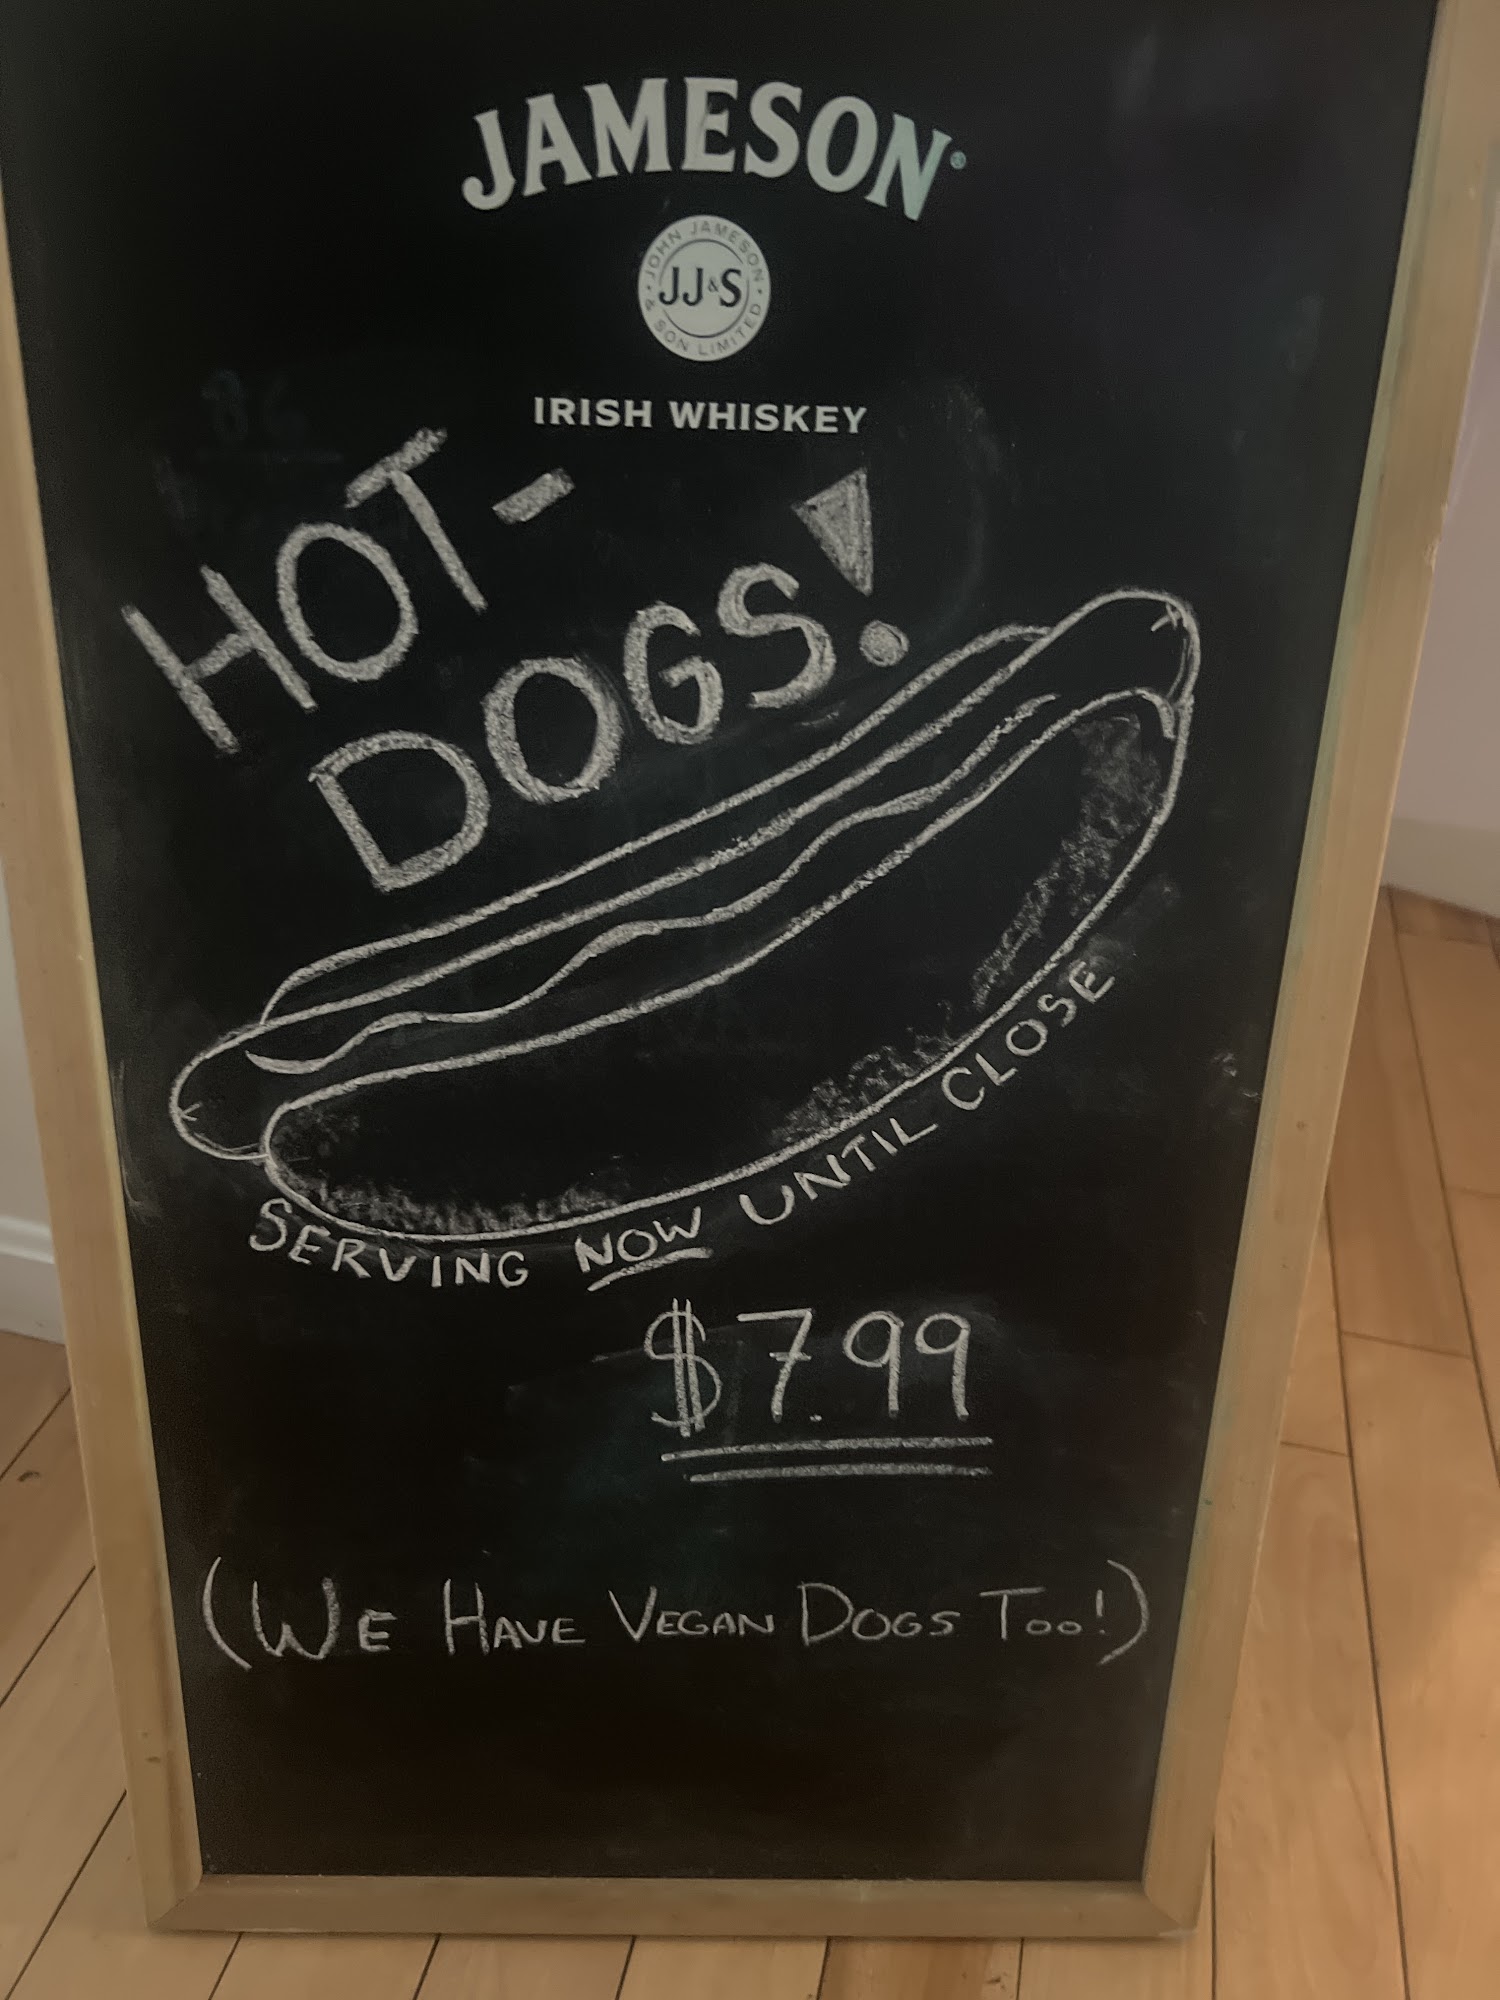 JAMESON®
JOHN JAMESON
JJ&S
& SON LIMITED
IRISH WHISKEY
HOT-
DOGS!
SERVING NOW UNTIL CLOSE
$7.99
(WE HAVE VEGAN DOGS TOO!)